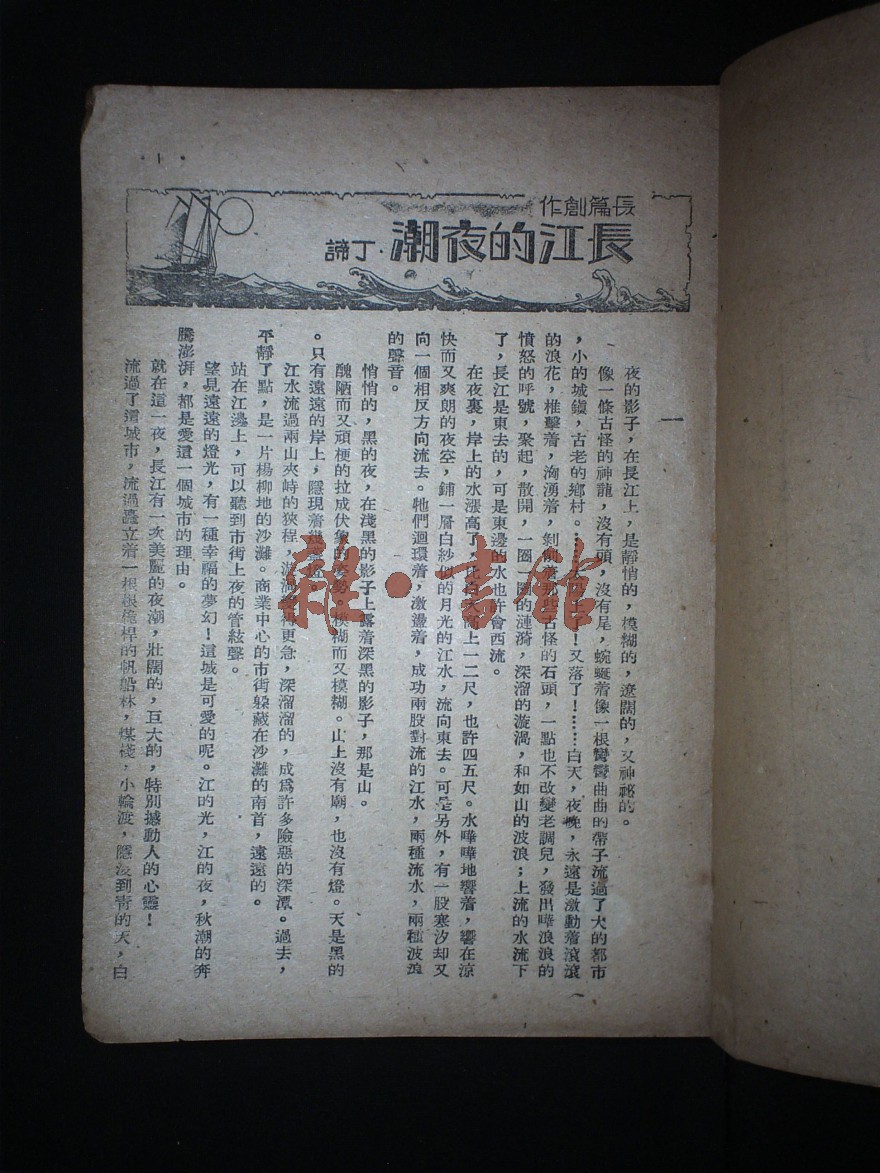 長篇創作
長江的夜潮·丁諦
一
夜的影子，在長江上，是靜悄的，模糊的，遼闊的，又神祕的。
像一條古怪的神龍，沒有頭，沒有尾，蜿蜒着像一根彎彎曲曲的帶子流過了大的都市
，小的城鎮，古老的鄉村。了！又落了！……白天，夜晚，永遠是激動着滾滾
的浪花，椎擊着，洶湧着，剝削着那些古怪的石頭，一點也不改變老調兒，發出嘩浪浪的
憤怒的呼號，聚起，散開，一圈一圈的漣漪，深溜的漩渦，和如山的波浪；上流的水流下
了，長江是東去的，可是東邊的水也許會西流。
在夜裏，岸上的水漲高了，上一二尺，也許四五尺。水嘩嘩地響着，響在涼
快而又爽朗的夜空，鋪一層白紗似的月光的江水，流向東去。可是另外，有一股寒汐却又
向一個相反方向流去。牠們迴環着，激盪着，成功兩股對流的江水，兩種流水，兩種波浪
的聲音。
悄悄的，黑的夜，在淺黑的影子上露着深黑的影子，那是山。
醜陋而又頑梗的拉成伏象的姿勢。模糊而又模糊。山上沒有廟，也沒有燈。天是黑的
。只有遠遠的岸上，隱現着幾盞燈。
江水流過兩山夾峙的狹程，得更急，深溜溜的，成爲許多險惡的深潭。過去，
平靜了點，是一片楊柳地的沙灘。商業中心的市街躲藏在沙灘的南首，遠遠的。
站在江邊上，可以聽到市街上夜的管絃聲。
望見遠遠的燈光，有一種幸福的夢幻！這城是可愛的呢。江的光，江的夜，秋潮的奔
騰澎湃，都是愛這一個城市的理由。
就在這一夜，長江有一次美麗的夜潮，壯闊的，巨大的，特別撼動人的心靈！
流過了這城市，流過矗立着一根根檣桿的帆船林，煤棧，小輪渡，隱沒到青的天，白
·1·
雜·書館